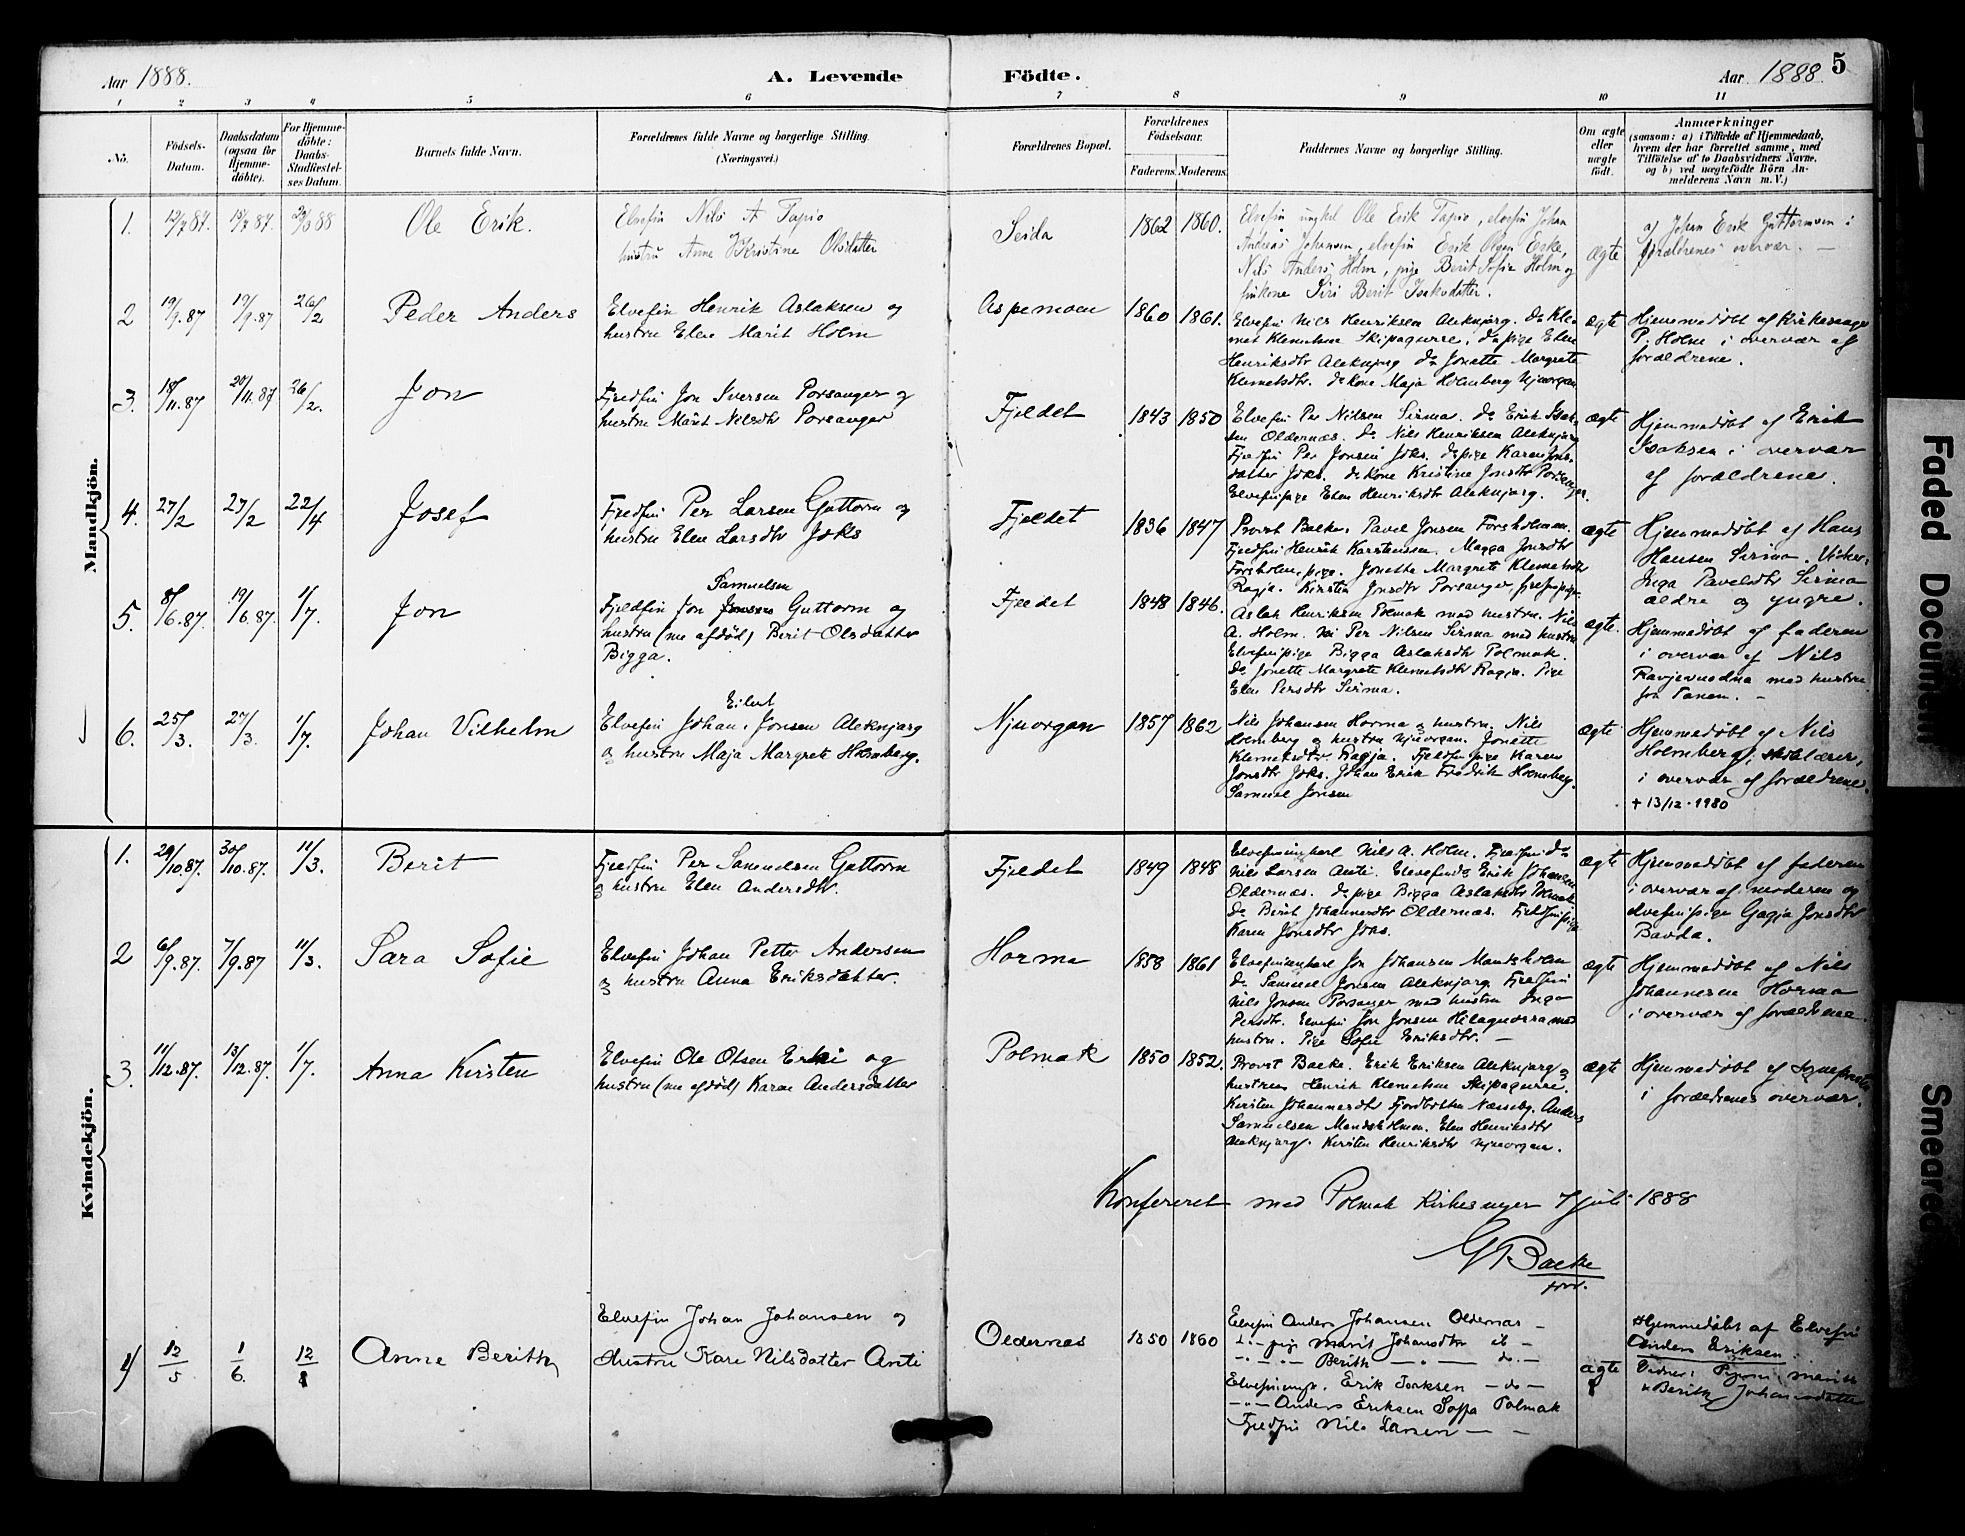 Aar 1888.
A. Levende Födte.
Aar 1888.
5
1 2 3 4 5 6 7 8 9 10 11
No.
Födsels-Datum.
Daabsdatum (ogsaa for Hjemme-döbte).
For Hjemme-döbte: Daabs-Stadfæstel-ses Datum.
Barnets fulde Navn.
Forældrenes fulde Navne og borgerlige Stilling.
(Næringsvei.)
Forældrenes Bopæl.
Forældrenes Födselsaar.
Faderens. Moderens.
Faddernes Navne og borgerlige Stilling.
Om ægte eller uægte födt.
Anmærkninger
(saasom: a) i Tilfælde af Hjemmedaab,
hvem der har forrettet samme, med
Tilföielse af to Daabsvidners Navne,
og b) ved uægtefödte Börn An-
melderens Navn m. V.)
Mandkjön.
1. 12/7 87. 15/7 87. 29/3 88 Ole Erik.
Elvefin Nils A Tapio
hustru Anne Kristine Olsdatter
Seida 1862 1860.
Elvefin ungkl Ole Erik Tapio, elvefin Johan
Andreas Johansen, elvefin Erik Olsen Erke,
Nils Anders Holm, pige Berit Sofie Holm og
finkone Siri Berit Isaksdatter.
ægte
a) Johan Erik Guttormsen i
forældrenes overvær. —
2 19/9.87 19/9.87 26/2 Peder Anders
Elvefin Henrik Aslaksen og
hustru Elen Marit Holm
Aspemoen 1860 1861.
Elvefin Nils Henriksen Aleknjarg. do Kle-
met Klemetsen Skipagurre. do pige Elen
Henriksdtr Aleknjarg do Jonette Margrete
Klemetsdtr. do kone Maja Holmberg Njuorgan
ægte
Hjemmedöbt af Kirkesanger
P. Holm i overvær af
forældrene.
3. 18/11.87 20/11.87 26/2. Jon
Fjeldfin Jon Iversen Porsanger og
hustru Marit Nilsdtr Porsanger
Fjeldet 1843 1850
Elvefin Per Nilsen Sirma. do Erik Isak-
sen Oldernæs. do Nils Henriksen Aleknjarg
Fjeldfin Per Jonsen Joks. do pige Karen Jons-
datter Joks. do kone Kristine Jonsdtr Porsanger.
Elvefinpige Elen Henriksdtr Aleknjarg.
ægte
Hjemmedöbt af Erik
Isaksen i overvær
af forældrene.
4. 27/2 27/2 22/4 Josef
Fjeldfin Per Larsen Guttorm og
hustru Elen Larsdtr Joks
Fjeldet 1836 1847
Provst Balke. Pavel Jonsen Forsholmen.
Fjeldfin Henrik Karstensen. Magga Jonsdtr
Forsholm, pige. Jonette Margrete Klemetsdtr
Ragja. Kirsten Jonsdtr Porsanger
ægte
Hjemmedöbt af Hans
Hansen Sirma. Vidner:
Inga Pavelsdtr Sirma
ældre og yngre.
5. 8/6.87. 19/6.87. 1/7. Jon
Samuelsen
Fjeldfin Jon Jonsen Guttorm og
hustru (nu afdöd) Berit Olsdatter
Bigga.
Fjeldet 1848 1846.
Aslak Henriksen Polmak med hustru. Nils
A. Holm. Per Nilsen Sirma med hustru
Elvefinpige Bigga Aslaksdtr Polmak.
do Jonette Margrete Klemetsdtr Ragja. Pige
Elen Persdtr Sirma.
ægte.
Hjemmedöbt af faderen
i overvær af Nils
med hustru
fra Tanen. —
6. 25/3. 27/3. 1/7. Johan Vilhelm
Eilert
Elvefin Johan Jonsen Aleknjarg
og hustru Maja Margrete Holmberg.
Njuorgan 1857 1862
Nils Johansen Horma og hustru. Nils
Holmberg og hustru Njuorgan. Jonette
Klemetsdtr Ragja. Fjeldfinpige Karen
Jonsdtr Joks. Johan Erik Fredrik Holmberg.
Samuel Jonsen
ægte
Hjemmedöbt af Nils
Holmberg, skolelærer,
i overvær af forældrene.
+ 13/12 - 1980
Kvindekjön.
1. 29/10.87. 30/10.87. 11/3. Berit
Fjeldfin Per Samuelsen Guttorm
og hustru Elen Andersdtr.
Fjeldet 1849 1848
Elvefinungkarl Nils A. Holm. Fjeldfin do
Nils Larsen Anti. Elvefin do Erik Johansen
Oldernæs. do pige Bigga Aslaksdtr Polmak
do Berit Johannesdtr Oldernæs. Fjeldfinpige
Karen Jonsdtr Joks.
ægte
Hjemmedöbt af faderen
i overvær af moderen og
elvefinpige Gagja Jonsdtr
Bavda.
2 6/9.87. 7/9.87 11/3. Sara Sofie
Elvefin Johan Petter Andersen
og hustru Anna Eriksdatter.
Horma 1858 1861
Elvefinungkarl Jon Johansen Mandsholmen
do Samuel Jonsen Aleknjarg. Fjeldfin
Nils Jonsen Porsanger med hustru Inga
Persdtr. Elvefin Jon Jonsen Hilaguorra med
hustru. Pige Sofie Eriksdtr. —
ægte
Hjemmedöbt af Nils
Johannesen Horma
i overvær af forældrene.
3. 11/12.87. 13/12.87. 1/7. Anna Kirsten
Elvefin Ole Olsen Erki og
hustru (nu afdöd) Karen Andersdatter
Polmak 1850 1852.
Provst Balke. Erik Eriksen Aleknjarg og
hustru. Henrik Klemetsen Skipagurre.
Kirsten Johannesdtr Fjordbotten Næsseby. Anders
Samuelsen Mandsholmen. Elen Henriksdtr
Aleknjarg. Kirsten Henriksdtr Njuorgan.
ægte
Hjemmedöbt af Sognepresten
i forældrenes overvær.
Konfereret med Polmak Kirkesanger 7 juli 1888
G Balke
prov.
4 12/5 1/6. 12/8 Anne Berith
Elvefin Johan Johansen og
Hustru Kare Nilsdatter Anti
Oldernes 1850 1860
Elvefin Anders Johansen Oldernæs —
do — pige Marit Johansdtr do —
— „ — „ — Berith — „ — do. —
Elvefinungk. Erik Isaksen — do —
— „ — Anders Eriksen Soffa Polmak
Fjeldfin Nils Larsen — —
ægte
Hjemmedöbt af Elvefin
Anders Eriksen.
Vidner: Pigerne Marith
& Berith Johansdatter
Faded Document
Smeared